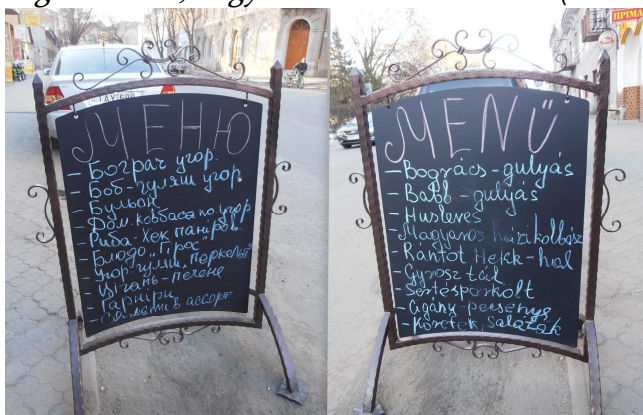 МЕНЮ
- Бограч угор.
- Боб-гуляш угор.
- Бульон
- Дом. ковбаса по угор
- Риба-Хек паніров.
- Блюдо „Гірос"
- Угор. гуляш „Перкольт"
- Циган-печене
- Гарніри
ассорт.
MENÜ
- Bogrács-gulyás
- Babb-gulyás
- Husleves
- Magyaros házi kolbász
- Rántot Hekk-hal
- Gyrosz tál
- Sertéspörkolt
- Cigány-pecsenye
- Köretek, Saláták